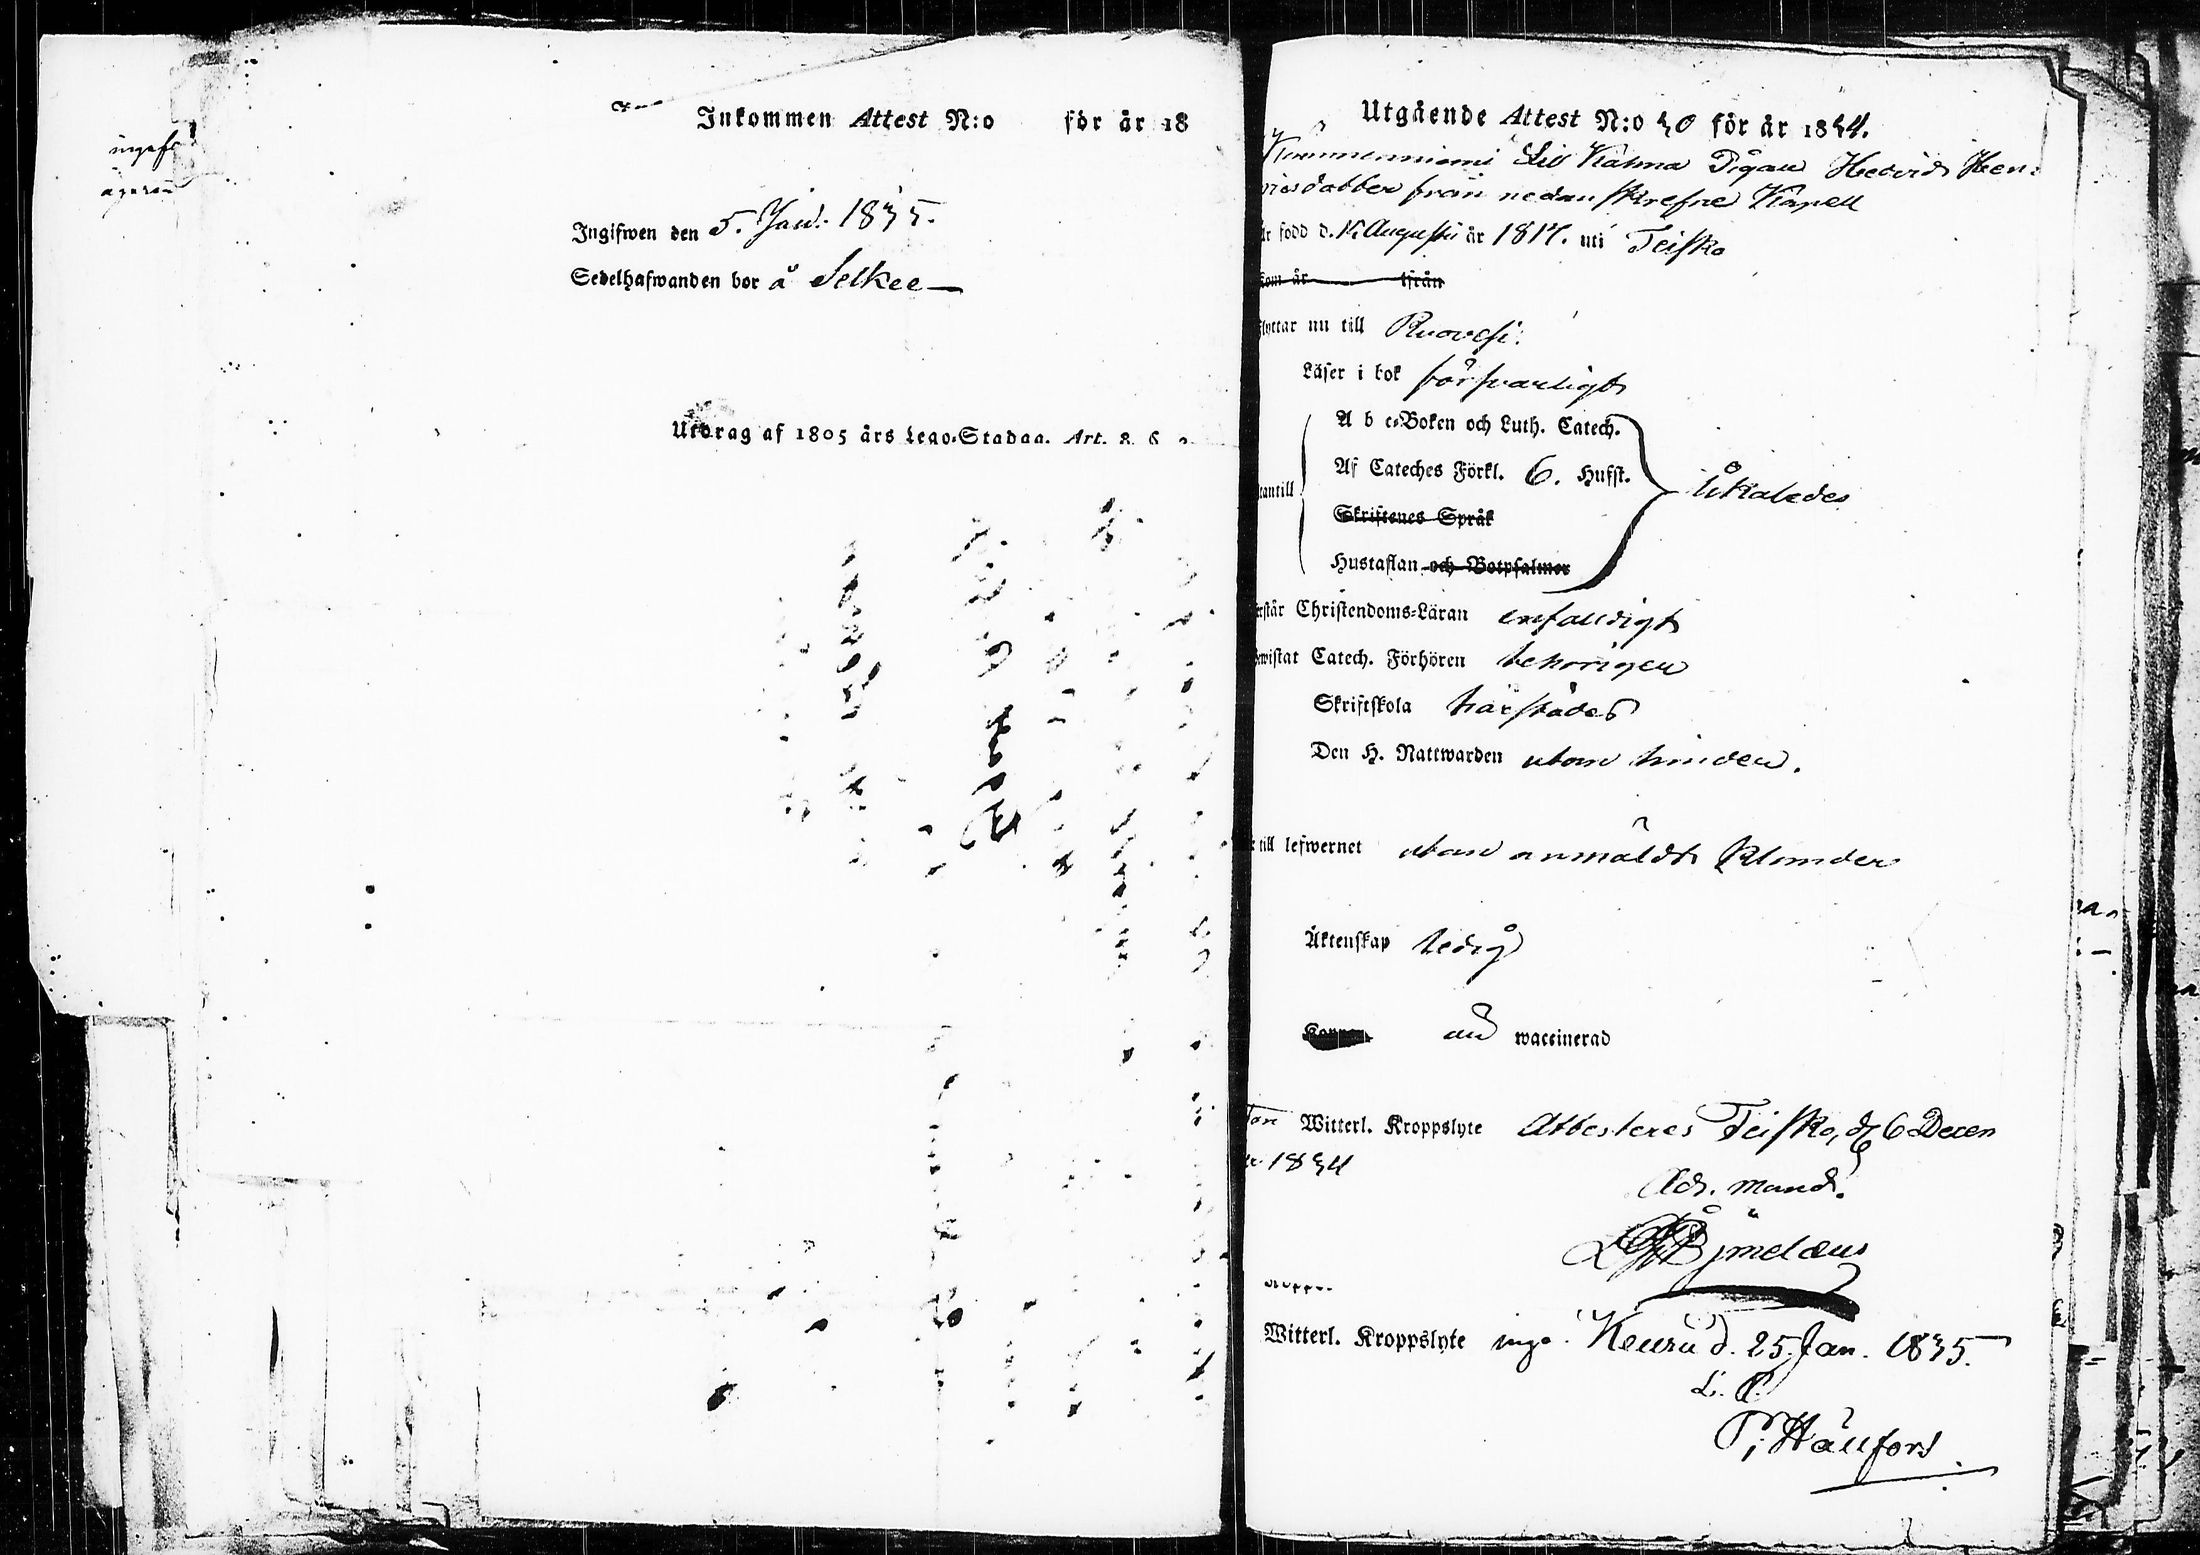 ingaf
ägaren
Inkommen Attest N:o för år 18
Ingifwen den 5. Jan: 1835.
Sedelhafwanden bor å Selkee
Utdrag af 1805 års Lego-Stadga. Art. 8. §
Utgående Attest N:o 30 för år 1834.
Lill Kahma Pigan Hedvid Hen-
ricsdotter från nedanskrefne Kapell
är född d. Augusti år 1817. uti Teisko
kom år ifrån
flyttar nu till Ruovesi.
Läser i bok försvarligt
A b c-Boken och Luth. Catech.
Af Cateches Förkl. 6. Hufst.
utantill likaledes
Skriftenes Språk
Hustaflan och Botpsalmer
Förstår Christendoms-Läran enfaldigt
Bewistat Catech. Förhören behörigen
Skriftskola härstädes
Den H. Nattwarden utan hinder.
till lefwernet utan anmäldt klander
Äktenskap ledig
Koppor waccinerad
Witterl. Kroppslyte Attesteres Teisko, d. 6 Decem
1834
Adj. mand.
Witterl. Kroppslyte inga. Keuru d. 25. Jan. 1835.
L. S.